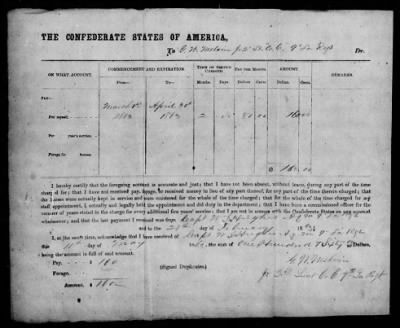 THE CONFEDERATE STATES OF AMERICA,
To Jr 2d Lieut Co C 9th La Regt Dr.
ON WHAT ACCOUNT. COMMENCEMENT AND EXPIRATION. TERM OF SERVICE CHARGED. PAY PER MONTH. AMOUNT. REMARKS.
From— To— Months. Days. Dolls. Cents. Dollars. Cents.
PAY—
For myself, March 1st 1862 April 30 1862 2 80 00 160 00
For years' service,
FORAGE for horses,
160.00
I hereby certify that the foregoing account is accurate and just; that I have not been absent without leave, during any part of the time
charged for; that I have not received pay, forage, or received money in lieu of any part thereof, for any part of the time therein charged; that
the horses were actually kept in service and were mustered for the whole of the time charged; that for the whole of the time charged for my
staff appointment, I actually and legally held the appointment and did duty in the department; that I have been a commissioned officer for the
number of years stated in the charge for every additional five years' service; that I am not in arrears with the Confederate States on any account
whatsoever; and that the last payment I received was from Capt
and to the 28th day of February 1862
I, at the same time, acknowledge that I have received of Capt
this day of May 1862 the sum of One Hundred & Sixty Dollars,
being the amount in full of said account.
Pay, 160
Forage,
Amount, $ 160
(Signed Duplicates.)
Jr 2d Lieut Co C 9th La Regt